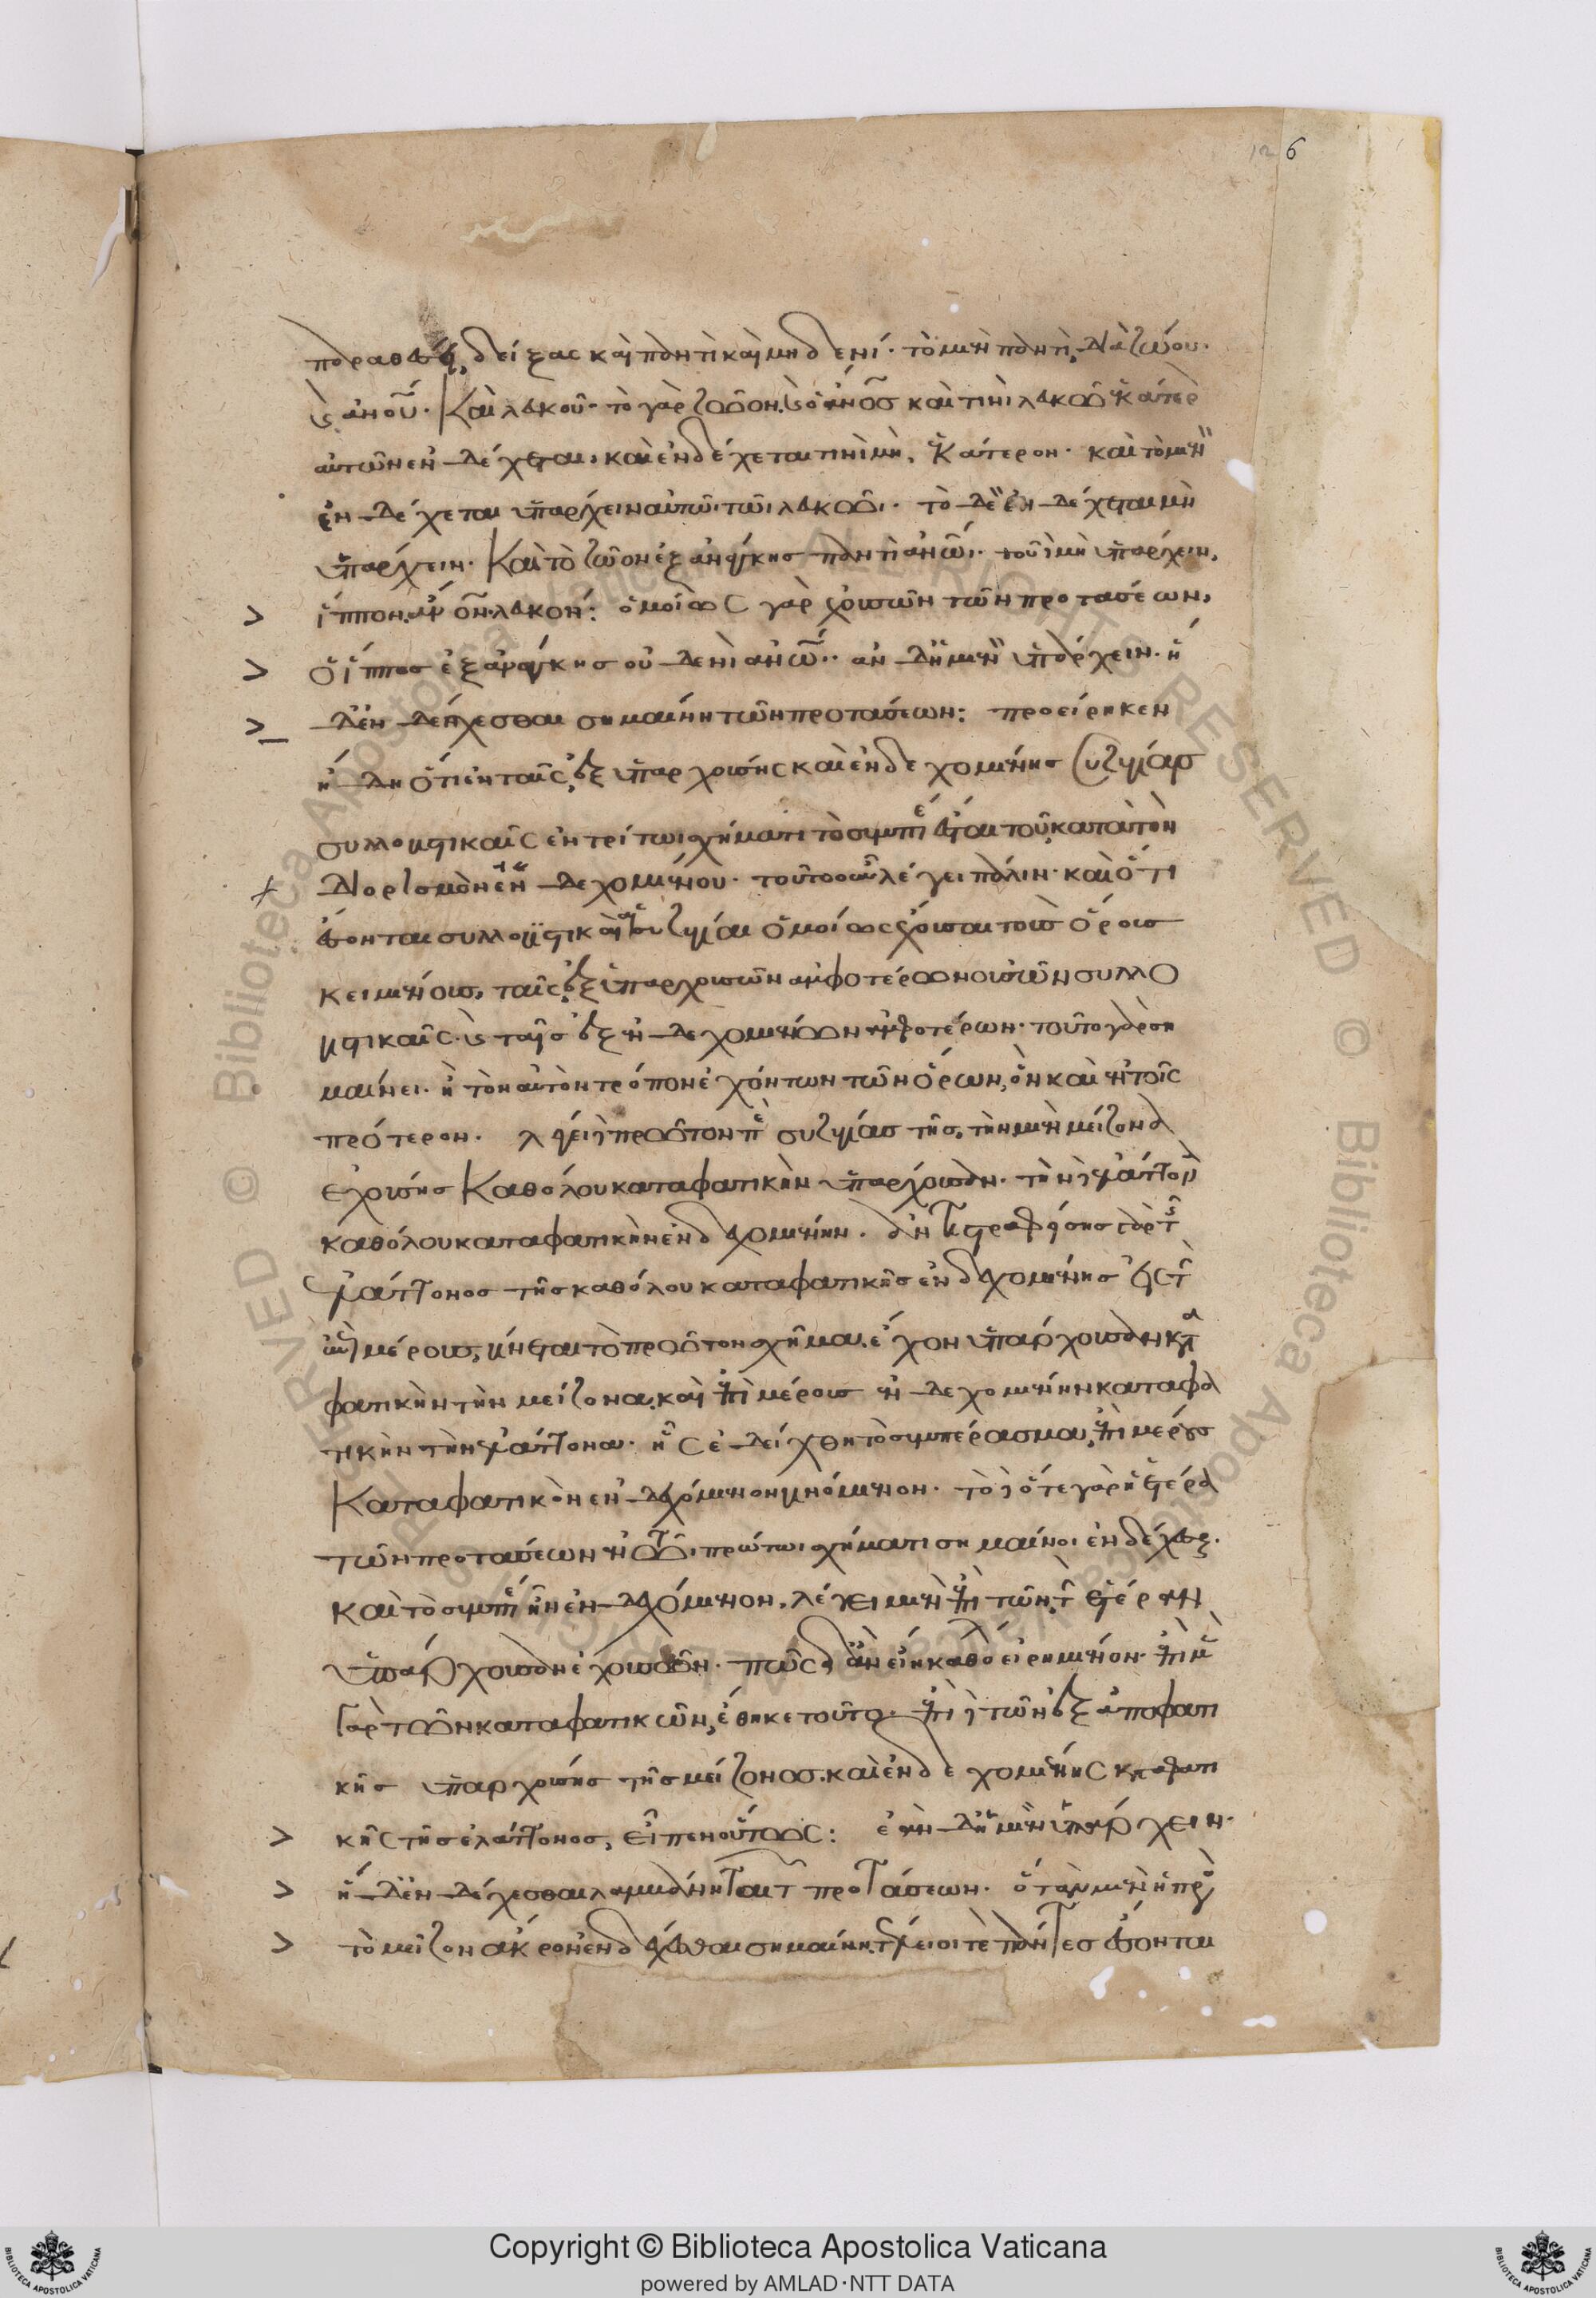 126
παραθέσει, δείξας καὶ παντὶ καὶ μηδενί· τὸ μὲν παντὶ, διὰ ζώου·
καὶ ἀνου· καὶ λευκοῦ· τὸ γὰρ ζῶον, καὶ ὁ ἀνος καὶ τινὶ λευκῶ ἑκάτερ
αὐτῶν ἐνδέχεται, καὶ ἐνδέχεται τινὶ μὴ, ἑκάτερον· καὶ τὸ μὲν
ἐνδέχεται ὑπάρχειν αὐτῶι τῶι λευκῶι· τὸ δὲ ἐνδέχεται μὴ
ὑπάρχειν· καὶ τὸ ζῶον ἐξ ἀνάγκης παντὶ ἀνωι· τοῦ δὲ μὴ ὑπάρχειν,
ἵππον. ἀνον. λευκόν: ὁμοίως γὰρ ἐχουσῶν τῶν προτάσεων,
ὁ ἵππος ἐξ ἀνάγκης οὐδενὶ ἀνω·· ἂν δὴ μὲν ὑπάρχειν· ἡ
δὲ ἐνδέχεσθαι σημαίνη τῶν προτάσεων: προείρηκεν
ἤδη ὅτι ἐν ταῖς ἐξ ὑπαρχούσης καὶ ἐνδεχομένης συζυγίας
συλλογιστικαῖς ἐν τρίτωι σχήματι τὸ συμπέ ἔσται τοῦ κατὰ τὸν
διορισμὸν ἐνδεχομένου· τοῦτο οὖν λέγει πάλιν· καὶ ὅτι
ἔσονται συλλογιστικαὶ αἱ συζυγίαι ὁμοίως ἔχουσαι τοῖς ὅροις
κειμένοις, ταῖς ἐξ ὑπαρχουσῶν ἀμφοτέρων οὐσῶν συλλο
γιστικαῖς· καὶ ταῖς ἐξ ἐνδεχομένων ἀμφοτέρων· τοῦτο γὰρ ση
μαίνει· ἢ τὸν αὐτὸν τρόπον ἐχόντων τῶν ὅρων, ὃν καὶ ἐν τοῖς
πρότερον· λέγει δὲ πρῶτον πε συζυγίας τῆς, τὴν μὲν μείζονα
ἐχούσης καθόλου καταφατικὴν ὑπάρχουσαν· τὴν δὲ ἐλάττον
καθόλου καταφατικὴν ἐνδεχομένην· ἀντιστραφείσης γὰρ τῆς
ἐλάττονος τῆς καθόλου καταφατικῆς ἐνδεχομένης εἰς τὴν
ἐπὶ μέρους, γίνεται τὸ πρῶτον σχῆμα, ἔχον ὑπάρχουσαν κατα
φατικὴν τὴν μείζονα, καὶ ἐπὶ μέρους ἐνδεχομένην καταφα
τικὴν τὴν ἐλάττονα· ἧς ἐδείχθη τὸ συμπέρασμα, ἐπὶ μέρους
καταφατικὸν ἐνδεχόμενον γινόμενον· τὸ δὲ ὅτε γὰρ ἡ ἑτέρα
τῶν προτάσεων ἐν τῶι πρώτωι σχήματι σημαίνοι ἐνδέχεσθαι·
καὶ τὸ συμπέ ἦν ἐνδεχόμενον, λέγει μὲν ἐπὶ τῶν, τὴν ἑτέραν
ὑπάρχουσαν ἐχουσῶν· πῶς δ' ἂν εἴη καθὸ εἰρημένον· ἐπὶ μὲν
γὰρ τῶν καταφατικῶν, ἔθηκε τοῦτο· ἐπὶ δὲ τῶν ἐξ ἀποφατι
κῆς ὑπαρχούσης τῆς μείζονος, καὶ ἐνδεχομένης καταφατι
κῆς τῆς ἐλάττονος, εἶπεν οὕτως: ἐὰν δὴ μὲν ὑπάρχειν·
ἡ δὲ ἐνδέχεσθαι λαμβάνηται τῶν προτάσεων· ὅταν μὲν ἡ πρὸς
τὸ μεῖζον ἄκρον ἐνδέχεσθαι σημαίνη, τέλειοί τε πάντες ἔσονται